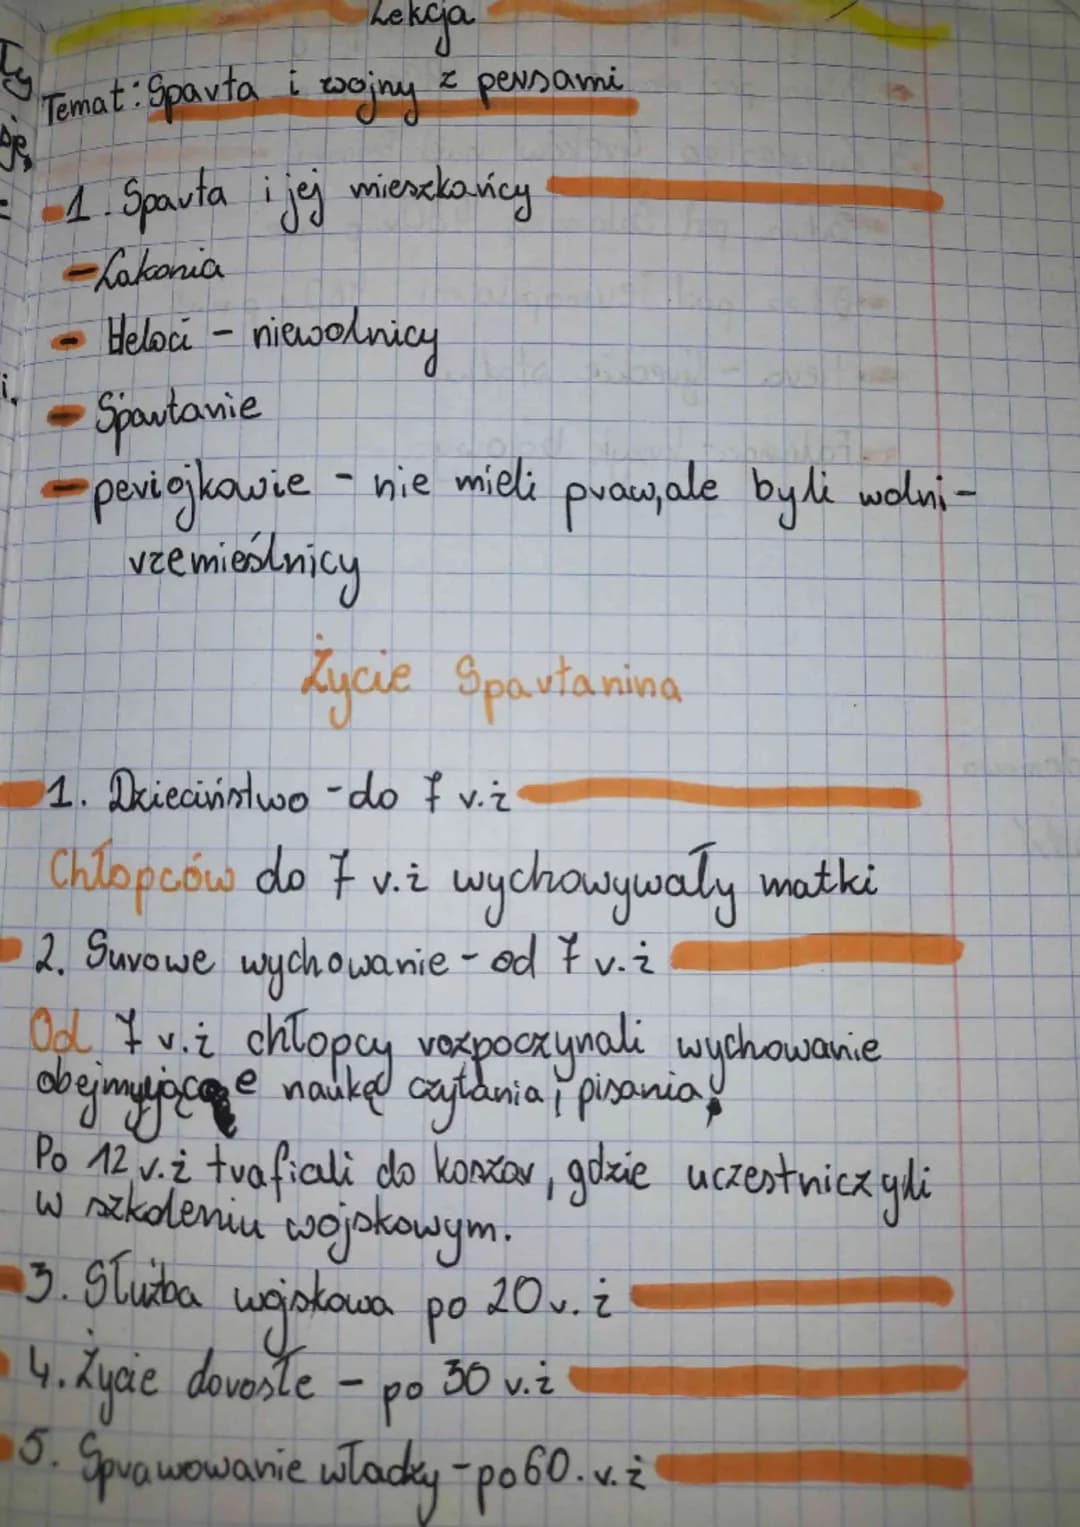 Lekcja
Temat: Sparta i wojny z persami
1. Sparta i jej mieszkańcy
- Lakonia
- Heloci - niewolnicy
- Spartanie
- periojkowie - nie mieli praw, ale byli wolni -
rzemieślnicy
Życie Spartanina
1. Dzieciństwo - do 7 r.ż
Chłopców do 7 r.ż wychowywały matki
2. Surowe wychowanie - od 7 r.ż
Od 7 r.ż chłopcy rozpoczynali wychowanie
obejmujące naukę czytania i pisania.
Po 12 r.ż trafiali do koszar, gdzie uczestniczyli
w szkoleniu wojskowym.
3. Służba wojskowa po 20 r.ż
4. Życie dorosłe - po 30 r.ż
5. Sprawowanie władzy - po 60. r.ż